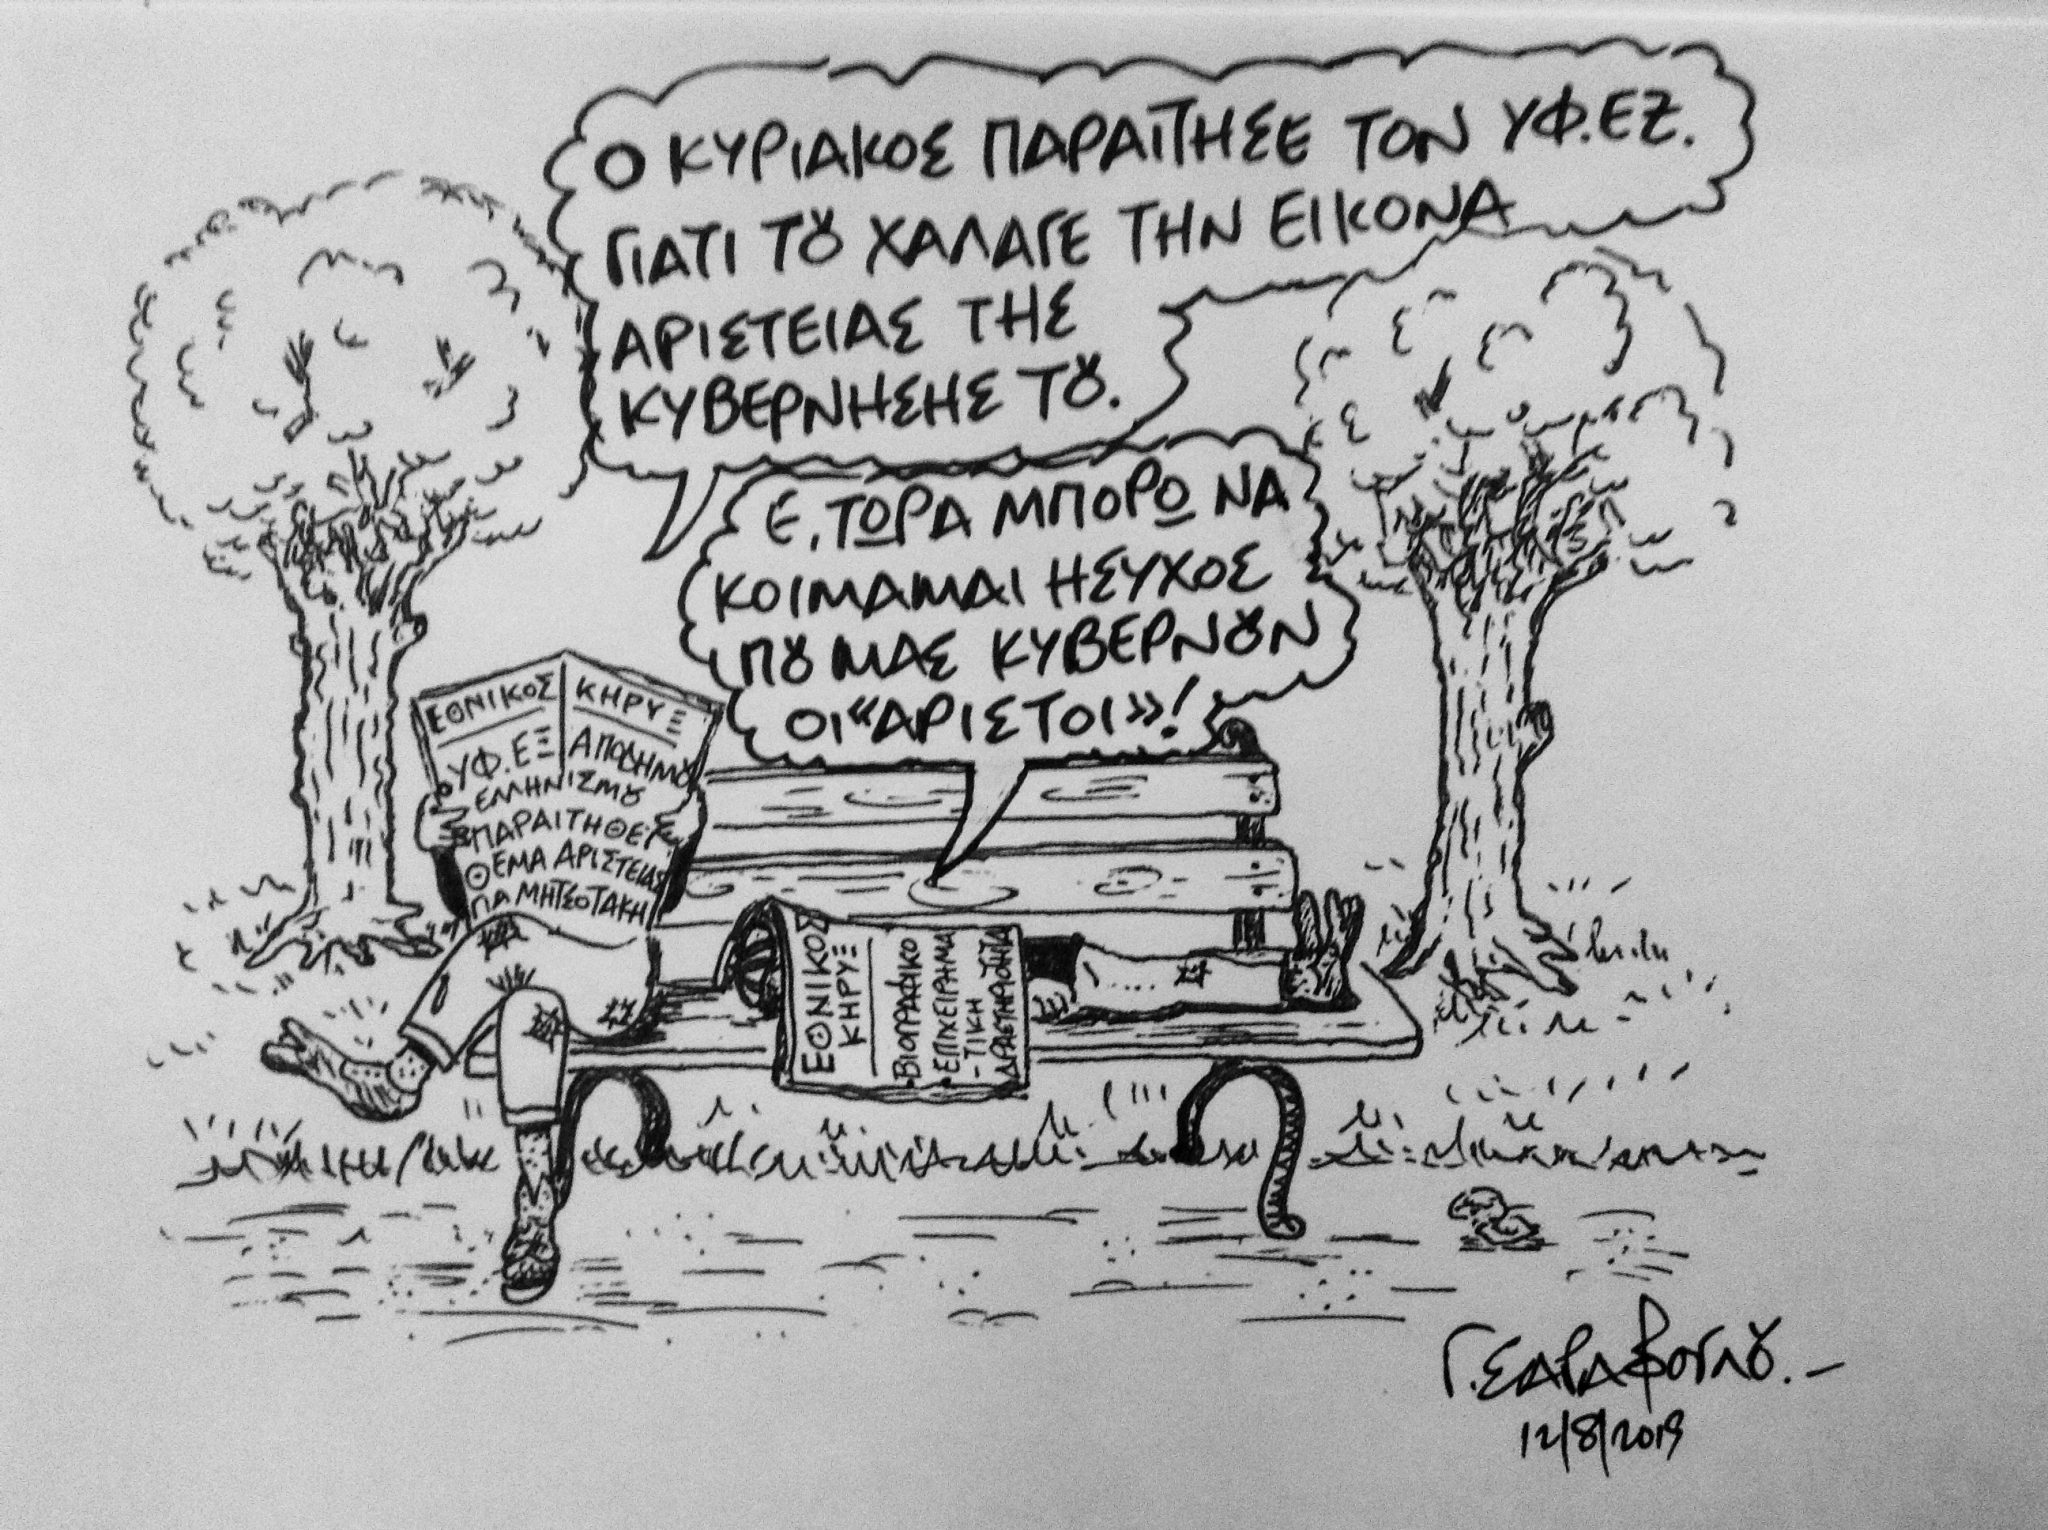 Ο ΚΥΡΙΑΚΟΣ ΠΑΡΑΙΤΗΣΕ ΤΟΝ ΥΦ.ΕΞ.
ΓΙΑΤΙ Τȣ ΧΑΛΑΓΕ ΤΗΝ ΕΙΚΟΝΑ
ΑΡΙΣΤΕΙΑΣ ΤΗΣ
ΚΥΒΕΡΝΗΣΗΣ Τȣ.
Ε, ΤΩΡΑ ΜΠΟΡΩ ΝΑ
ΚΟΙΜΑΜΑΙ ΗΣΥΧΟΣ
Πȣ ΜΑΣ ΚΥΒΕΡΝȣΝ
ΟΙ «ΑΡΙΣΤΟΙ»!
ΕΘΝΙΚΟΣ ΚΗΡΥΞ
ΥΦ.ΕΞ ΑΠΟΔΗΜȣ
ΕΛΛΗΝΙΣΜȣ
ΠΑΡΑΙΤΗΘΕΙ
ΘΕΜΑ ΑΡΙΣΤΕΙΑΣ
ΓΙΑ ΜΗΤΣΟΤΑΚΗ
ΕΘΝΙΚΟΣ
ΚΗΡΥΞ
•ΒΙΟΓΡΑΦΙΚΟ
•ΕΠΙΧΕΙΡΗΜΑ
-ΤΙΚΗ
ΔΡΑΣΤΗΡΙΟΤΗΤΑ
Γ.ΣΑΡΑΦΟΓΛȣ.-
12/8/2019